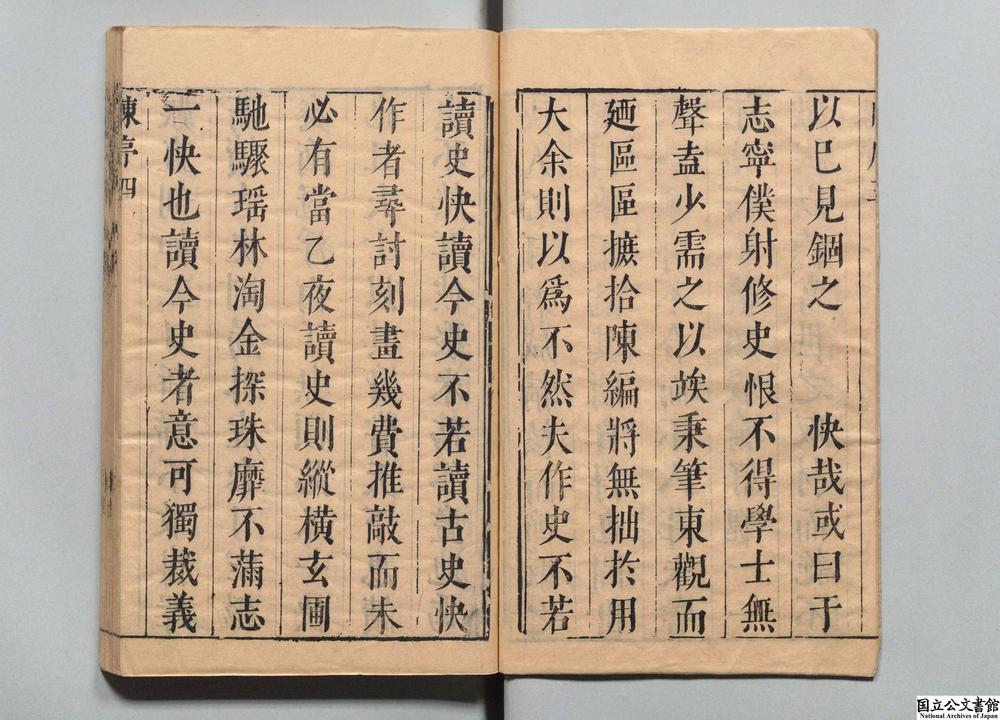 以已見錮之　快哉或曰于
志寧僕射修史恨不得學士無
聲盍少需之以竢秉筆東觀而
廼區區摭拾陳編將無拙於用
大余則以為不然夫作史不若
讀史快讀今史不若讀古史快
作者尋討刻畫幾費推敲而未
必有當乙夜讀史則縱橫玄圃
馳驟瑶林淘金探珠靡不滿志
一快也讀今史者意可獨裁義
陳亭四
国立公文書館
National Archives of Japan